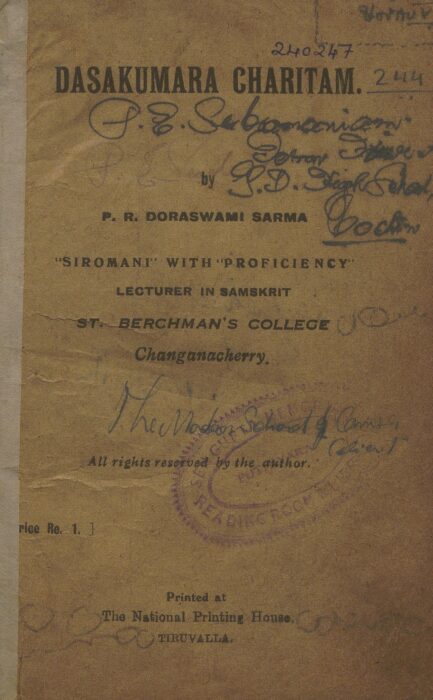 240247
DASAKUMARA CHARITAM.
244
P. E. Subramaniam
by
G. D. High School,
Cochin
P. R. DORASWAMI SARMA
"SIROMANI" WITH "PROFICIENCY"
LECTURER IN SAMSKRIT
ST. BERCHMAN'S COLLEGE
Changanacherry.
The Modern School of
All rights reserved by the author.
READING ROOM
rice Re. 1. ]
Printed at
The National Printing House,
TIRUVALLA.